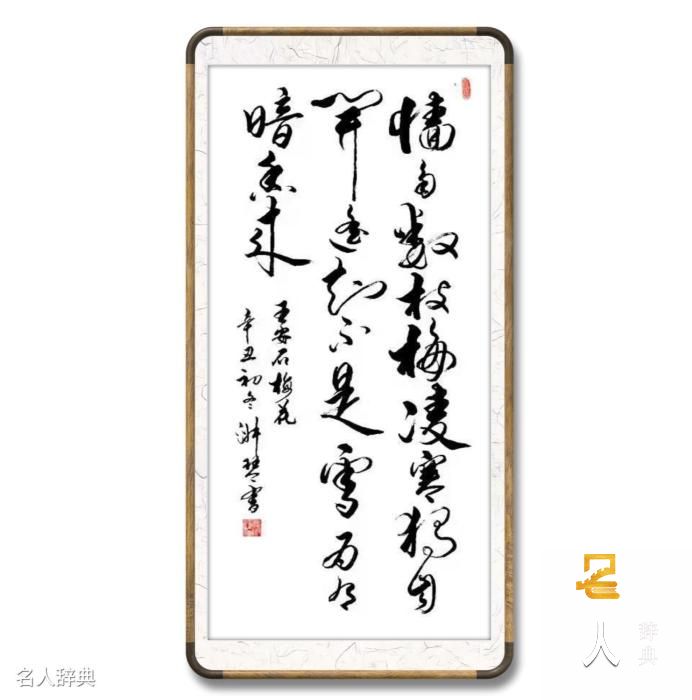 墙角数枝梅凌寒独自
开遥知不是雪为有
暗香来
王安石梅花
辛丑初冬
书
名人辞典
名人辞典